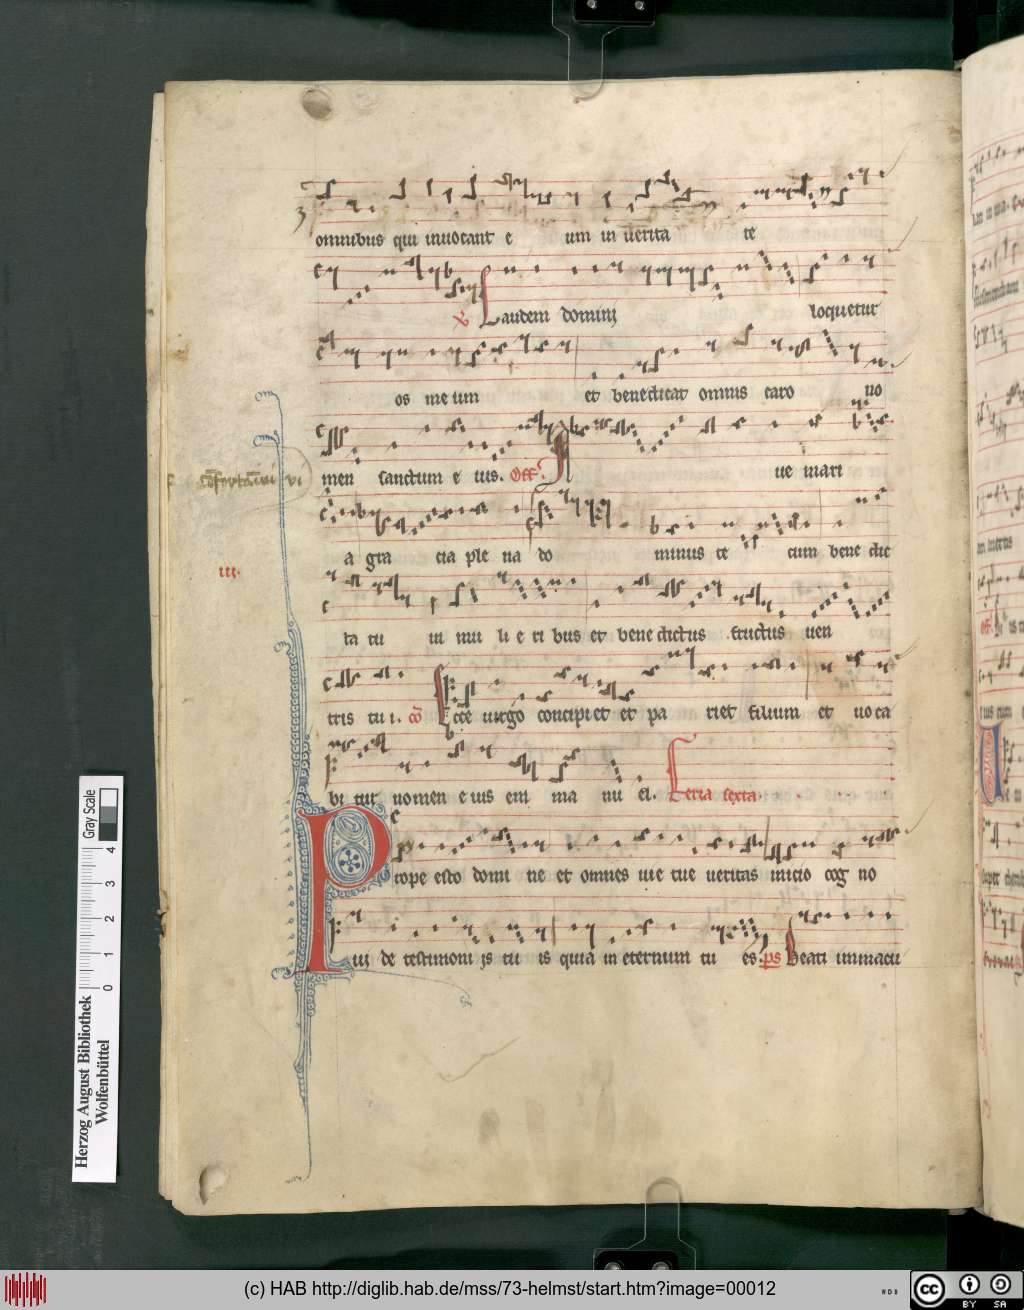 omnibus qui inuocant e um in ueritate te
V Laudem domini loquetur
os me um et benedicat omnis caro no
men sanctum e ius. Off A ue mari
vi
a gra cia ple na do minus te cum bene dic
III.
ta tu in mu li e ri bus et bene dictus fructus uen
tris tu i. cō Ecce uirgo concipi et et pa riet filium et uoca
bi tur nomen e ius em ma nu el. Feria sexta.
Prope esto domi ne et omnes uie tue ueritas inicio cog no
ui de testimoni js tu is quia in eternum tu es. ps Beati inmacu
Gray Scale
4
3
2
1
0
Herzog August Bibliothek
Wolfenbüttel
(c) HAB http://diglib.hab.de/mss/73-helmst/start.htm?image=00012
cc BY SA